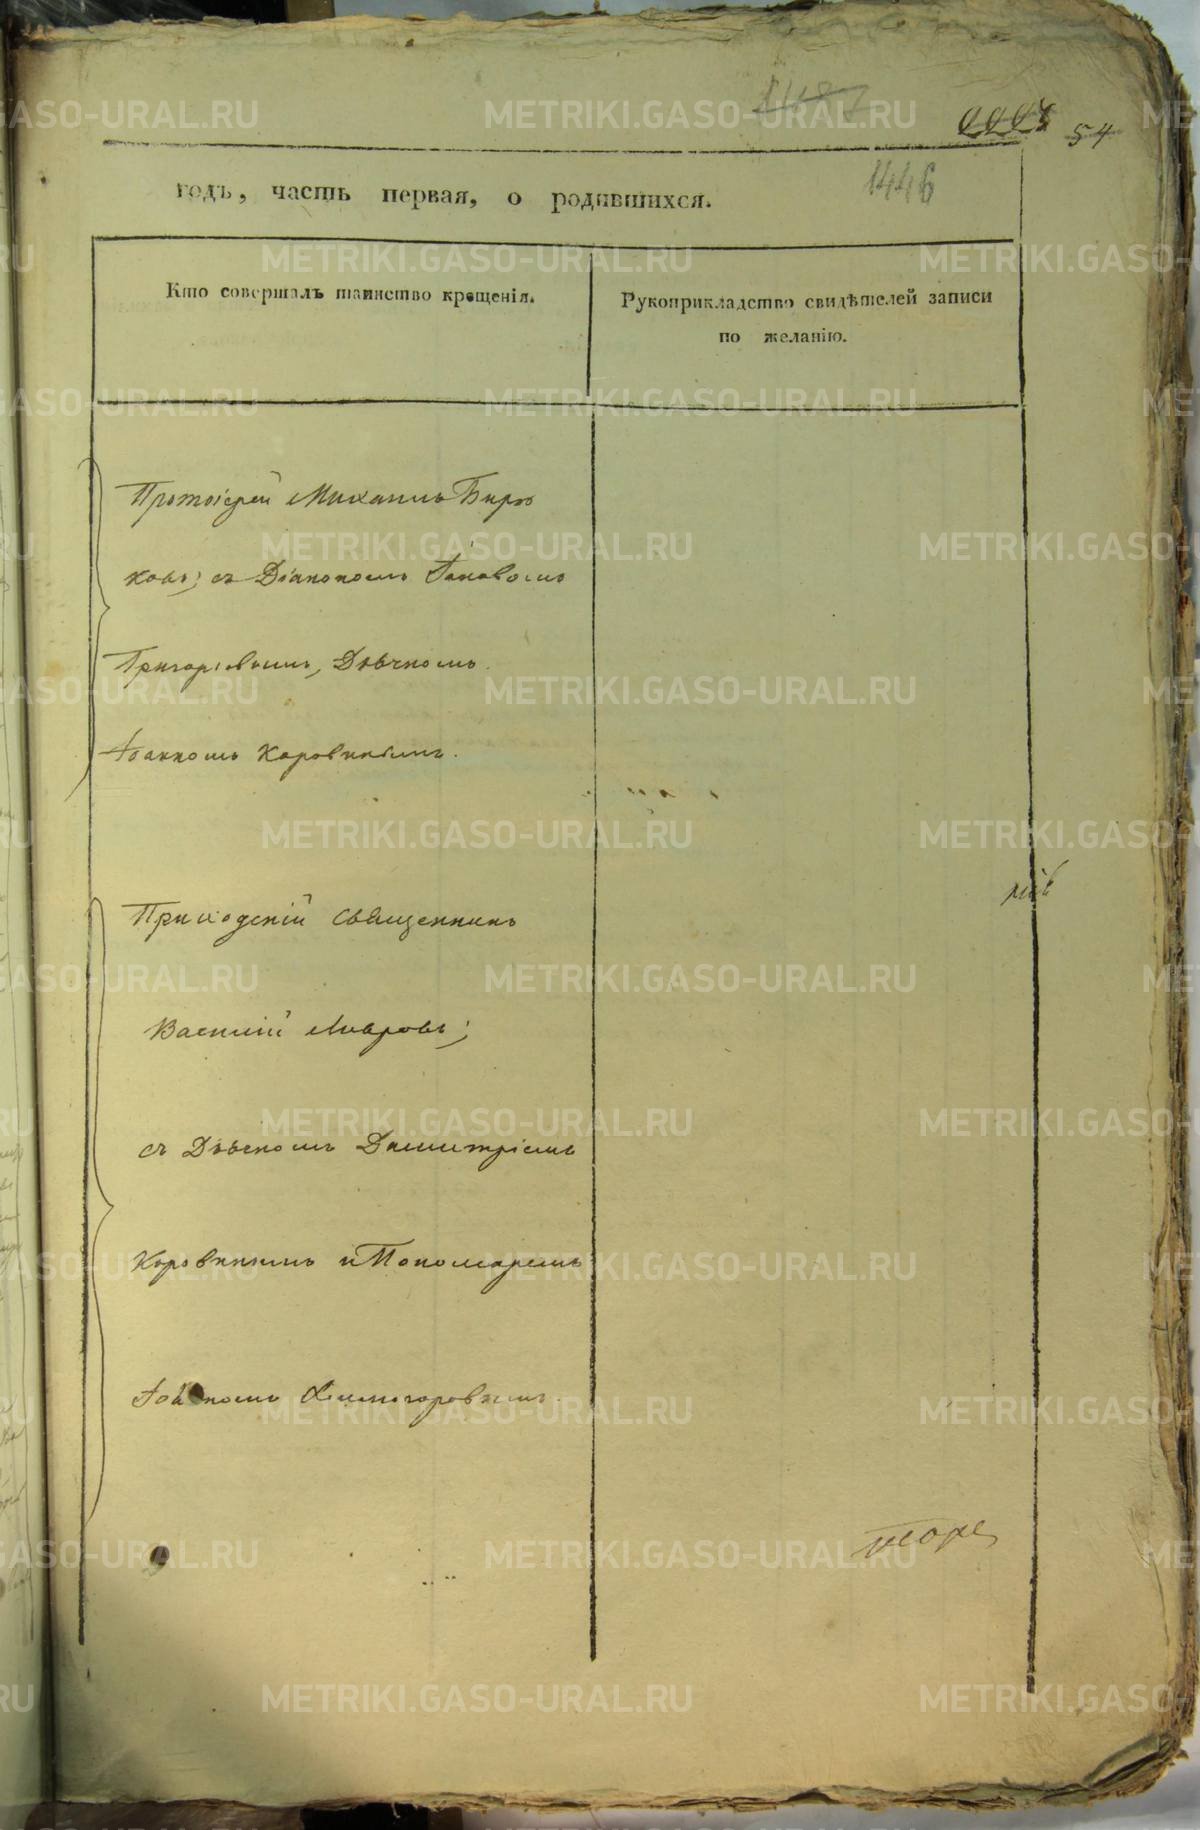 54
446
годъ, часть первая, о родившихся.
Кто совершалъ таинство крещенія.
Рукоприкладство свидѣтелей записи
по желанію.
Протоіерей Михаилъ Бирю
ковъ; съ Діакономъ Іаковомъ
Григорьевымъ, Дьячкомъ
Іоанномъ Коровинымъ.
Приходскій Священникъ
Василій Лавровъ;
съ Дьячкомъ Димитріемъ
Коровинымъ и Пономаремъ
Іоанномъ Холмогоровымъ.
METRIKI.GASO-URAL.RU